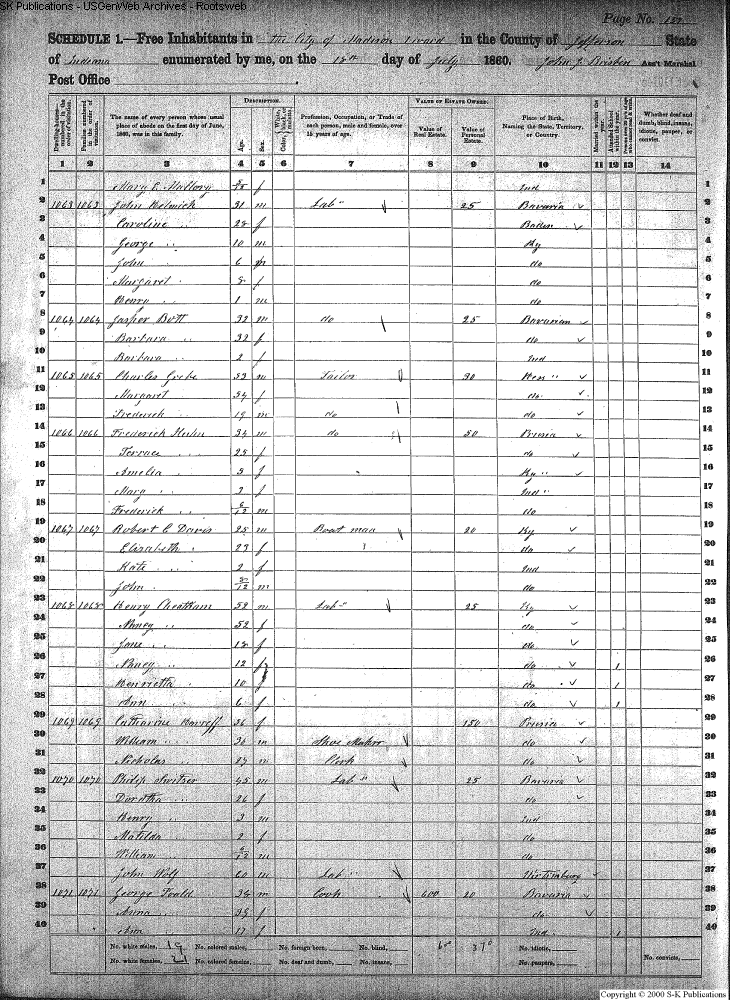 SK Publications - USGenWeb Archives - Rootsweb
Page No.
SCHEDULE 1.—Free Inhabitants in the City of Madison in the County of Jefferson State
of Indiana enumerated by me, on the 18th day of July 1860. John J. Brisben Ass't Marshal
Post Office
DESCRIPTION. VALUE OF ESTATE OWNED.
Dwelling-houses numbered in the order of visitation. Families numbered in the order of visitation. The name of every person whose usual place of abode on the first day of June, 1860, was in this family. Age. Sex. Color, White, black, or mulatto. Profession, Occupation, or Trade of each person, male and female, over 15 years of age. Value of Real Estate. Value of Personal Estate. Place of Birth, Naming the State, Territory, or Country. Married within the year. Attended School within the year. Whether deaf and dumb, blind, insane, idiotic, pauper, or convict.
1 2 3 4 5 6 7 8 9 10 11 12 13 14
1 Mary E. Mallory f Ind 1
2 1063 1063 John 31 m Lab" 25 Bavaria 2
3 Caroline " 28 f Baden 3
4 George " 10 m Ky 4
5 John " 6 m do 5
6 Margaret " f do 6
7 Henry " 1 m do 7
8 1064 1064 Jasper Bott 32 m do 25 Bavarian 8
9 Barbara " 32 f do 9
10 Barbara " 2 f Ind 10
11 1065 1065 Charles Grebe 53 m Tailor 30 Hess " 11
12 Margaret 54 f do 12
13 Frederick " 19 m do do 13
14 1066 1066 Frederick 34 m do 50 Prusia 14
15 25 f do 15
16 Amelia " 3 f Ky " 16
17 Mary " f Ind " 17
18 Frederick " 6/12 m do 18
19 1067 1067 Robert C Davis 25 m Boat man 20 Ky 19
20 Elizabeth " 23 f do 20
21 Kate " 2 f Ind 21
22 John m do 22
23 1068 1068 Henry Cheatham 52 m Lab" 25 Ky 23
24 Nancy " 52 f do 24
25 Jane " 18 f do 25
26 Nancy " 12 f do 1 26
27 Henrietta " 10 f do 1 27
28 Ann " 6 f do 1 28
29 1069 1069 Catharine 36 f 150 Prusia 29
30 William " 30 m Shoe Maker do 30
31 Nicholas " m Clerk do 31
32 1070 1070 Philip Switzer 45 m Lab" 25 Bavaria 32
33 Dorotha " 26 f do 33
34 Henry " 3 m Ind 34
35 Matilda " 2 f do 35
36 William " m do 36
37 John Wolf 60 m Lab" 37
38 1071 1071 George 34 m 600 20 Bavaria 38
39 Anna " f do 39
40 Ann " f Ind 1 40
No. white males, 19 No. colored males, No. foreign born, No. blind, 600 370 No. idiotic,
No. white females, 21 No. colored females, No. deaf and dumb, No. insane, No. paupers, No. convicts,
Copyright © 2000 S-K Publications